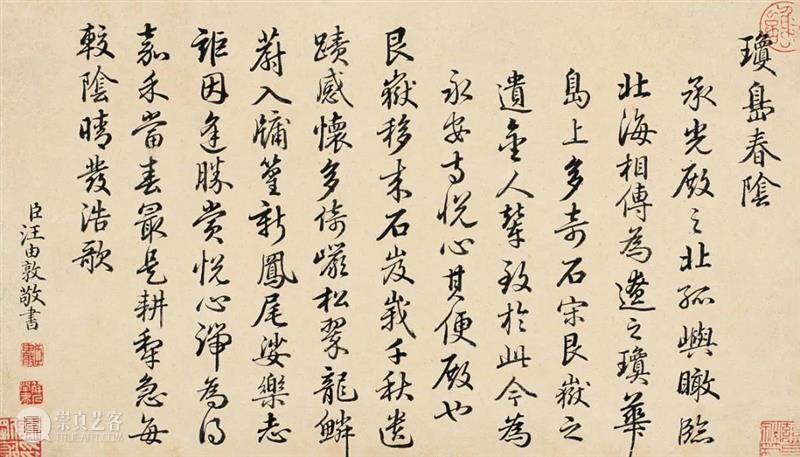 瓊島春陰
承光殿之北孤嶼瞰臨
北海相傳為遼之瓊華
島上多奇石宋艮嶽之
遺金人輦致於此今為
永安寺悅心其便殿也
艮嶽移來石岌峩千秋遺
蹟感懷多倚巖松翠龍鱗
蔚入牖篁新鳳尾娑樂志
詎因逢勝賞悅心端為得
嘉禾當春最是耕犁急每
較陰晴發浩歌
臣汪由敦敬書
崇真艺客